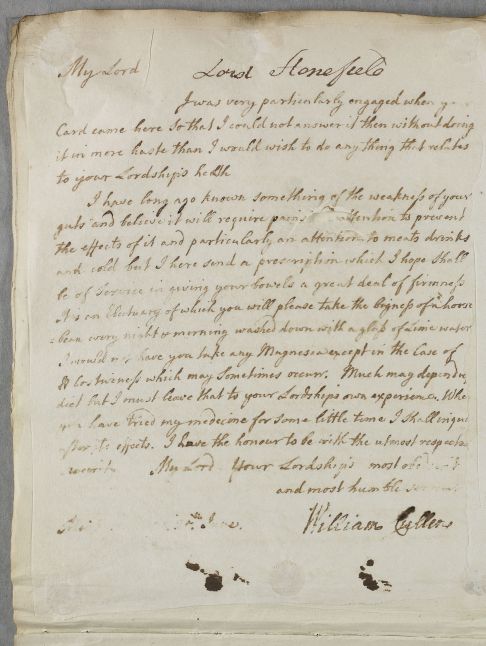 My Lord Lord Stonefield
I was very particularly engaged when
Card came here so that I could not answer it then without doing
it in more haste than I would wish to do any thing that relates
to your Lordships health
I have long ago known something of the weakness of your
guts and believe it will require pains attention to prevent
the effects of it and particularly an attention to meats drinks
and cold but I here send a prescription which I hope shall
be of Service in giving your bowels a great deal of firmness
It is an Electuary of which you will please take the bigness of a horse
bean every night & morning washed down with a glass of Lime water
I would have you take any Magnesia except in the Case of
Costiveness which may sometimes occur. Much may depend
diet but I must leave that to your Lordships own experience. Whe
have tried my medecine for some little time I shall inqu
effects. I have the honour to be with the utmost respect
My Lord Your Lordships most
and most humble
June. William Cullen